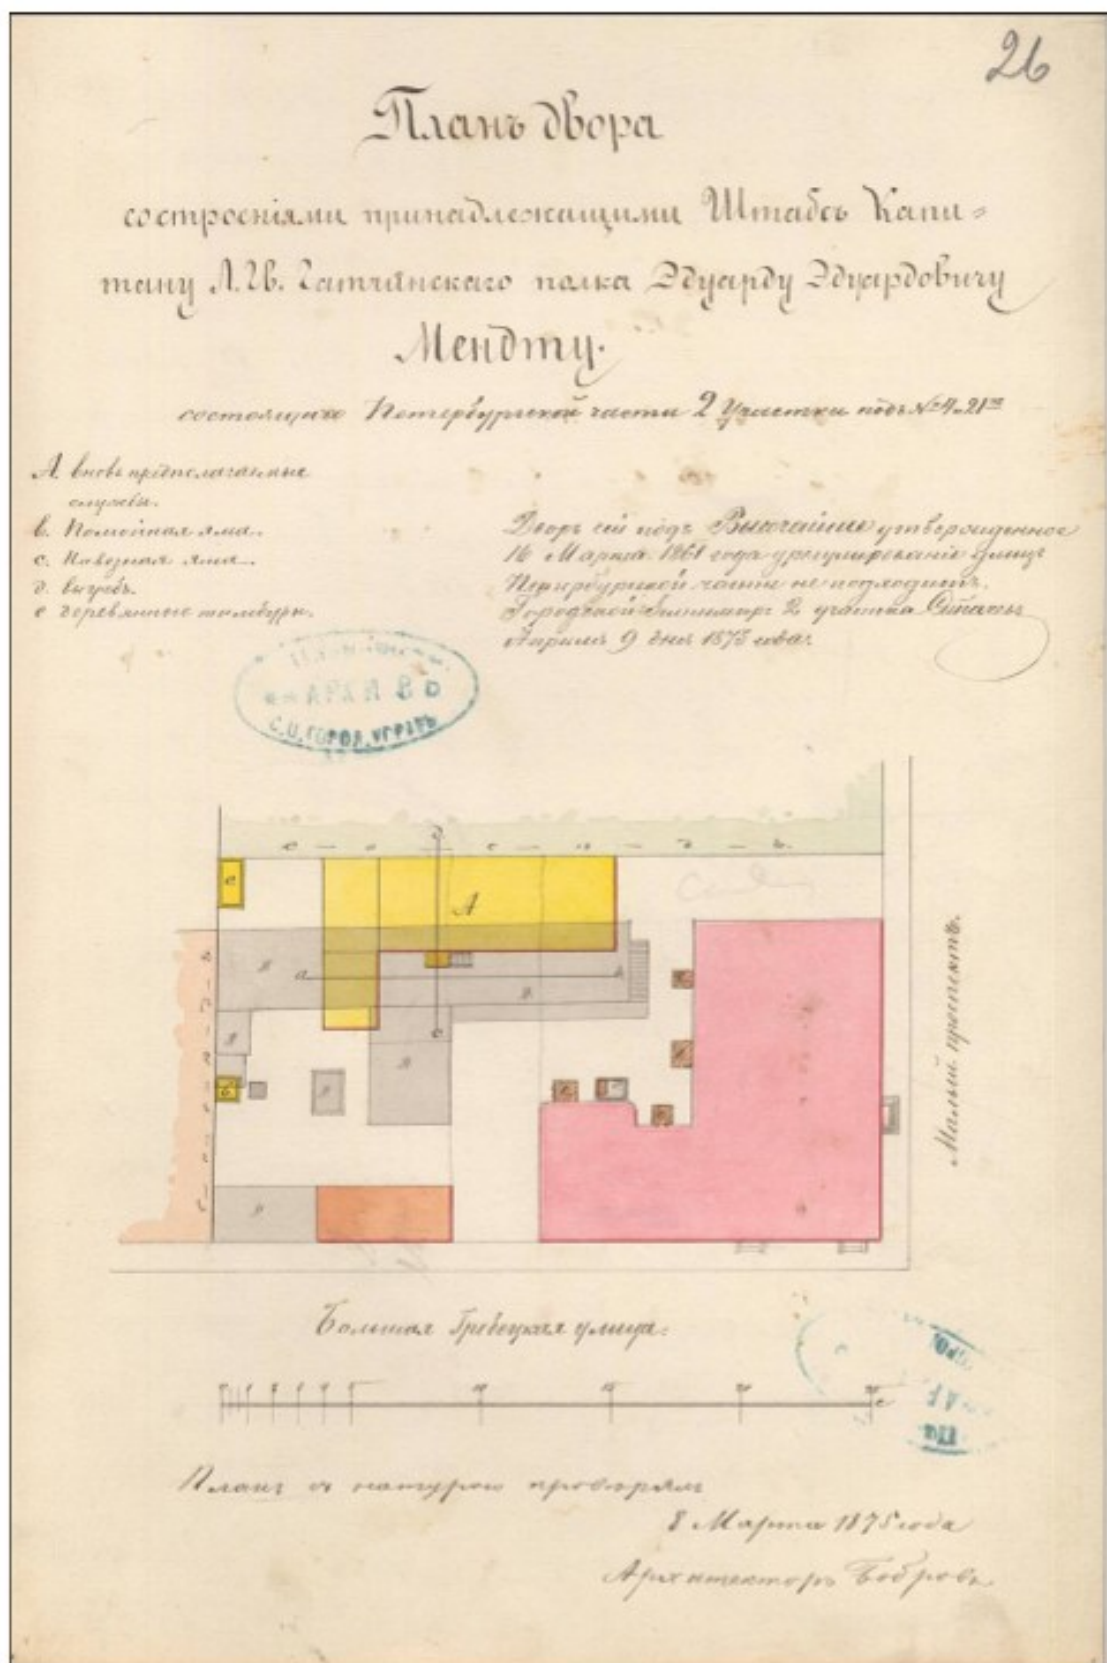 26
Планъ двора
состроенiями принадлежащими Штабсъ Капи-
тану Л. Гв. Гатчинскаго полка Эдуарду Эдуардовичу
Мендту.
состоящаго Петербургской части 2 Участка подъ №
А. вновь предполагаемые
службы.
в. Помойная яма.
с. Навозная яма.
д. выгребъ.
е деревянные тамбуры.
Дворъ сей подъ Высочайше утвержденное
16 Марта 1861 года урегулированiе улицъ
Петербургской части не подходитъ.
Городской 2 участка
Апрѣля 9 дня 1875 года.
АРХИВЪ
С.П. ГОРОД. УПРАВЫ
с о с ѣ д ъ
А
е
а
с
Малый проспектъ.
Большая Гребецкая улица.
Планъ съ натурою провѣрялъ
8 Марта 1875 года
Архитекторъ Бобровъ